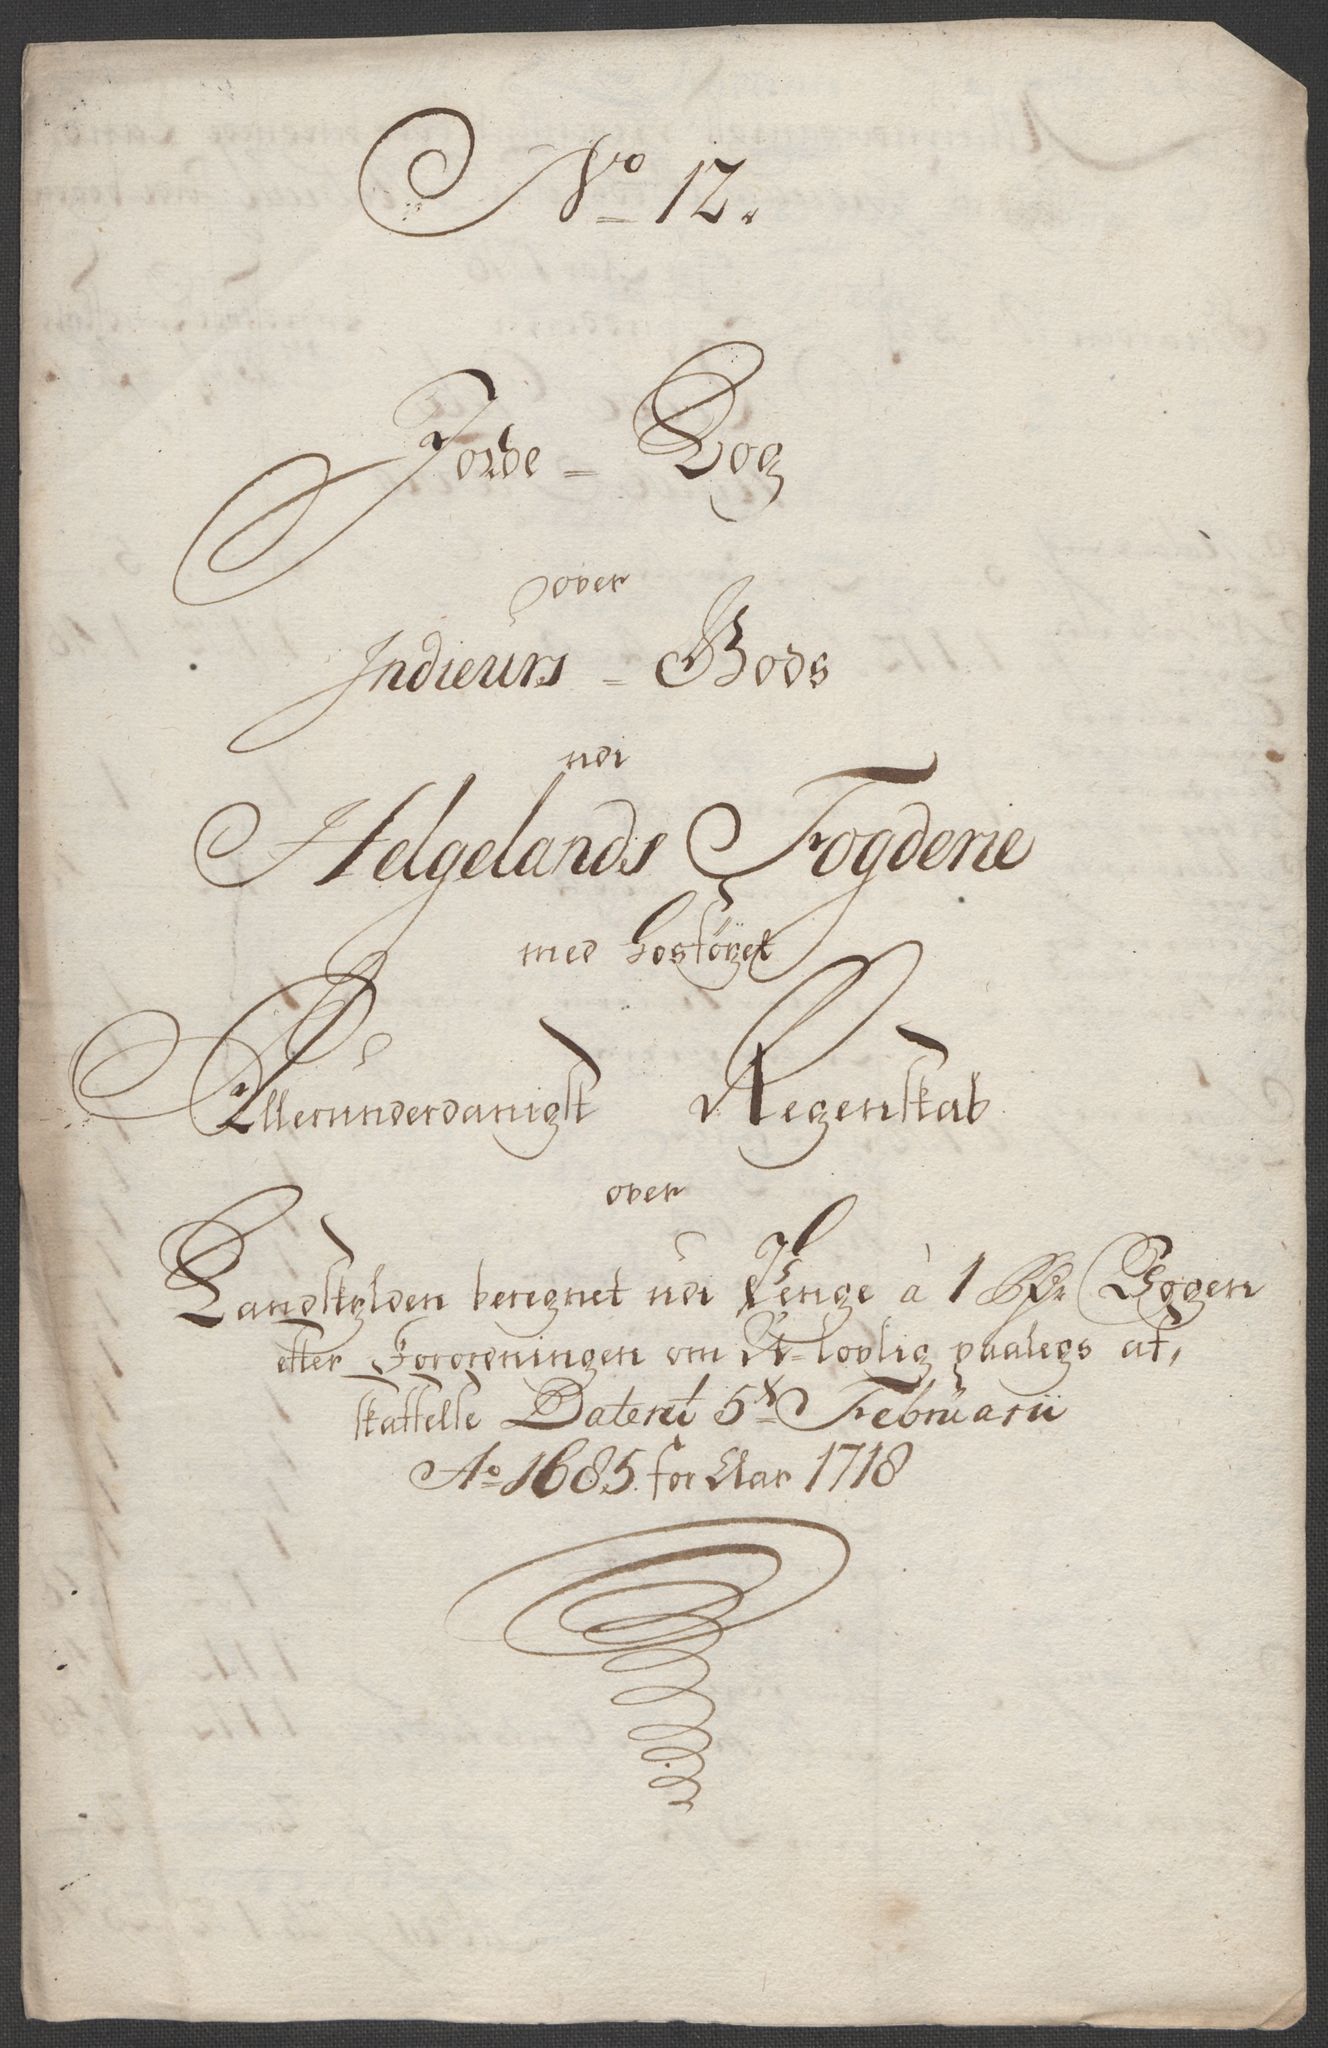 No 12.
Jorde - Bog
over
Indieurs - Gods
udi
Helgelands Fogderie
med hosføyet
Allerunderdanigst Regenskab
over
Landskylden beregnet udi Penge à 1 Wogen
efter Forordningen om U-lovlig paalegs af,
skaffelse Dateret 5t Februarii
Ao 1685 for Aar 1718